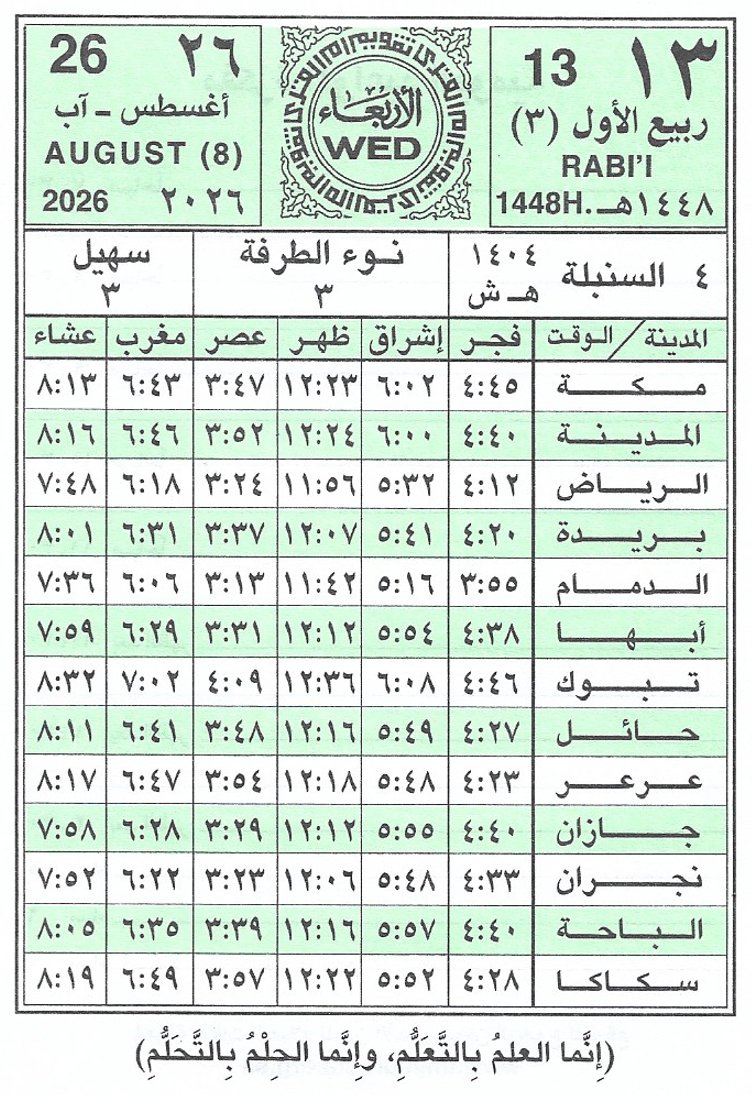 ١٣ 13
ربيع الأول (٣)
RABI'I
1448H. ١٤٤٨هـ
الأربعاء
WED
26 ٢٦
أغسطس – آب
AUGUST (8)
2026 ٢٠٢٦
٤ السنبلة ١٤٠٤ هـ ش
نوء الطرفة
٣
سهيل
٣
المدينة / الوقت فجر إشراق ظهر عصر مغرب عشاء
مكة ٤:٤٥ ٦:٠٢ ١٢:٢٣ ٣:٤٧ ٦:٤٣ ٨:١٣
المدينة ٤:٤٠ ٦:٠٠ ١٢:٢٤ ٣:٥٢ ٦:٤٦ ٨:١٦
الرياض ٤:١٢ ٥:٣٢ ١١:٥٦ ٣:٢٤ ٦:١٨ ٧:٤٨
بريدة ٤:٢٠ ٥:٤١ ١٢:٠٧ ٣:٣٧ ٦:٣١ ٨:٠١
الدمام ٣:٥٥ ٥:١٦ ١١:٤٢ ٣:١٣ ٦:٠٦ ٧:٣٦
أبها ٤:٣٨ ٥:٥٤ ١٢:١٢ ٣:٣١ ٦:٢٩ ٧:٥٩
تبوك ٤:٤٦ ٦:٠٨ ١٢:٣٦ ٤:٠٩ ٧:٠٢ ٨:٣٢
حائل ٤:٢٧ ٥:٤٩ ١٢:١٦ ٣:٤٨ ٦:٤١ ٨:١١
عرعر ٤:٢٣ ٥:٤٨ ١٢:١٨ ٣:٥٤ ٦:٤٧ ٨:١٧
جازان ٤:٤٠ ٥:٥٥ ١٢:١٢ ٣:٢٩ ٦:٢٨ ٧:٥٨
نجران ٤:٣٣ ٥:٤٨ ١٢:٠٦ ٣:٢٣ ٦:٢٢ ٧:٥٢
الباحة ٤:٤٠ ٥:٥٧ ١٢:١٦ ٣:٣٩ ٦:٣٥ ٨:٠٥
سكاكا ٤:٢٨ ٥:٥٢ ١٢:٢٢ ٣:٥٧ ٦:٤٩ ٨:١٩
(إِنَّما العلمُ بِالتَّعَلُّمِ، وإِنَّما الحِلْمُ بِالتَّحَلُّمِ)